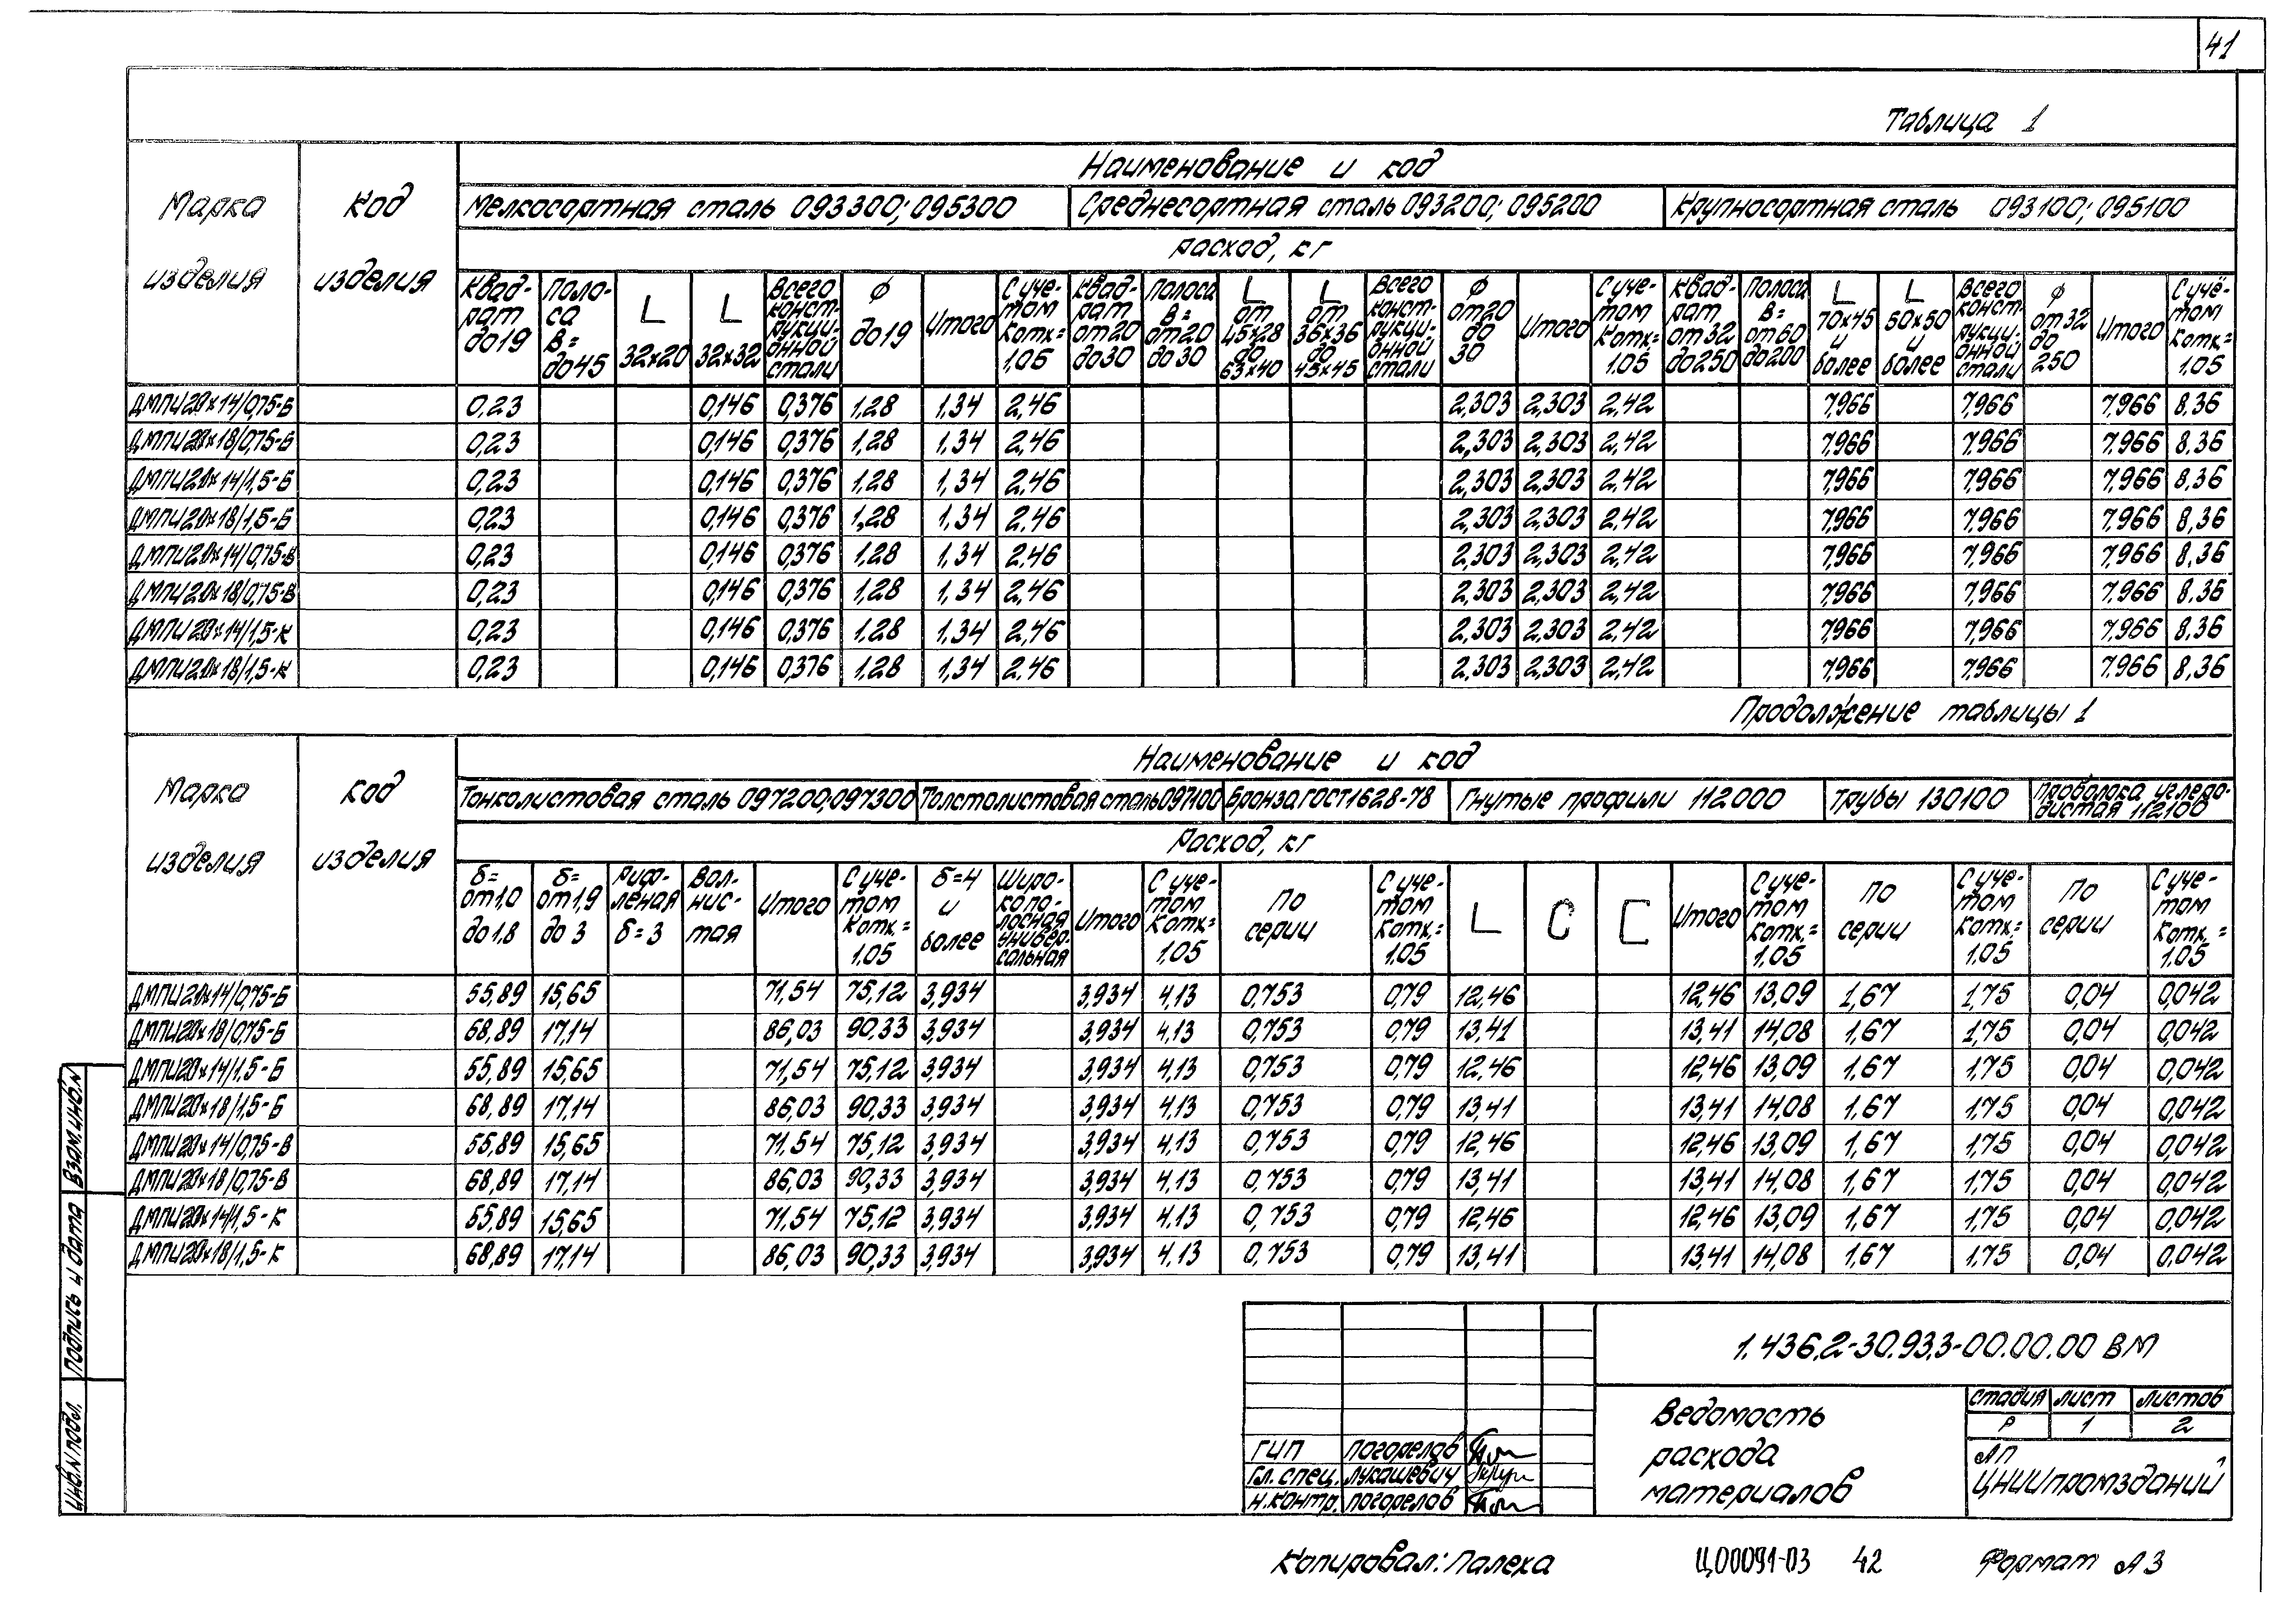 41
Таблица 1
Марка изделия
Код изделия
Наименование и код
Мелкосортная сталь 093300; 095300
Среднесортная сталь 093200; 095200
Крупносортная сталь 093100; 095100
расход, кг
Квад- рат до19
Поло- са В= до45
L 32×20
L 32×32
Всего конст- рукци- онной стали
ф до19
Итого
С уче- том Котх.= 1,05
Квад- рат от20 до30
Полоса В= от20 до 30
L от 45×28 до 63×40
L от 36×36 до 45×45
Всего конст- рукци- онной стали
ф от20 до 30
Итого
С уче- том Котх.= 1,05
Квад- рат от32 до250
Полоса В= от60 до200
L 70×45 и более
L 50×50 и более
Всего конст- рукци- онной стали
ф от 32 до 250
Итого
С учё- том Котх.= 1,05
ДМПИ20×14/0,75-Б 0,23 0,146 0,376 1,28 1,34 2,46 2,303 2,303 2,42 7,966 7,966 7,966 8,36
ДМПИ20×18/0,75-Б 0,23 0,146 0,376 1,28 1,34 2,46 2,303 2,303 2,42 7,966 7,966 7,966 8,36
ДМПИ20×14/1,5-Б 0,23 0,146 0,376 1,28 1,34 2,46 2,303 2,303 2,42 7,966 7,966 7,966 8,36
ДМПИ20×18/1,5-Б 0,23 0,146 0,376 1,28 1,34 2,46 2,303 2,303 2,42 7,966 7,966 7,966 8,36
ДМПИ20×14/0,75-В 0,23 0,146 0,376 1,28 1,34 2,46 2,303 2,303 2,42 7,966 7,966 7,966 8,36
ДМПИ20×18/0,75-В 0,23 0,146 0,376 1,28 1,34 2,46 2,303 2,303 2,42 7,966 7,966 7,966 8,36
ДМПИ20×14/1,5-К 0,23 0,146 0,376 1,28 1,34 2,46 2,303 2,303 2,42 7,966 7,966 7,966 8,36
ДМПИ20×18/1,5-К 0,23 0,146 0,376 1,28 1,34 2,46 2,303 2,303 2,42 7,966 7,966 7,966 8,36
Продолжение таблицы 1
Марка изделия
Код изделия
Наименование и код
Тонколистовая сталь 097200; 097300
Толстолистовая сталь 097100
Бронза ГОСТ1628-78
Гнутые профили 112000
Трубы 130100
Проволока углеро- дистая 112100
Расход, кг
δ= от1,0 до 1,8
δ= от1,9 до 3
Риф- леная δ=3
Вол- нис- тая
Итого
С уче- том Котх.= 1,05
δ=4 и более
Широ- копо- лосная универ- сальная
Итого
С уче- том Котх.= 1,05
По серии
С уче- том Котх.= 1,05
L
С
[
Итого
С уче- том Котх.= 1,05
По серии
С уче- том Котх.= 1,05
По серии
С уче- том Котх.= 1,05
ДМПИ20×14/0,75-Б 55,89 15,65 71,54 75,12 3,934 3,934 4,13 0,753 0,79 12,46 12,46 13,09 1,67 1,75 0,04 0,042
ДМПИ20×18/0,75-Б 68,89 17,14 86,03 90,33 3,934 3,934 4,13 0,753 0,79 13,41 13,41 14,08 1,67 1,75 0,04 0,042
ДМПИ20×14/1,5-Б 55,89 15,65 71,54 75,12 3,934 3,934 4,13 0,753 0,79 12,46 12,46 13,09 1,67 1,75 0,04 0,042
ДМПИ20×18/1,5-Б 68,89 17,14 86,03 90,33 3,934 3,934 4,13 0,753 0,79 13,41 13,41 14,08 1,67 1,75 0,04 0,042
ДМПИ20×14/0,75-В 55,89 15,65 71,54 75,12 3,934 3,934 4,13 0,753 0,79 12,46 12,46 13,09 1,67 1,75 0,04 0,042
ДМПИ20×18/0,75-В 68,89 17,14 86,03 90,33 3,934 3,934 4,13 0,753 0,79 13,41 13,41 14,08 1,67 1,75 0,04 0,042
ДМПИ20×14/1,5-К 55,89 15,65 71,54 75,12 3,934 3,934 4,13 0,753 0,79 12,46 12,46 13,09 1,67 1,75 0,04 0,042
ДМПИ20×18/1,5-К 68,89 17,14 86,03 90,33 3,934 3,934 4,13 0,753 0,79 13,41 13,41 14,08 1,67 1,75 0,04 0,042
Взам.инв.N
Подпись и дата
Инв.N подл.
1.436.2-30.93.3-00.00.00 ВМ
Ведомость
расхода
материалов
стадия лист листов
Р 1 2
АП
ЦНИИпромзданий
ГИП Погорелов
Гл. спец. Лукашевич
Н.контр. Погорелов
Копировал: Палеха Ц00091-03 42 Формат А3